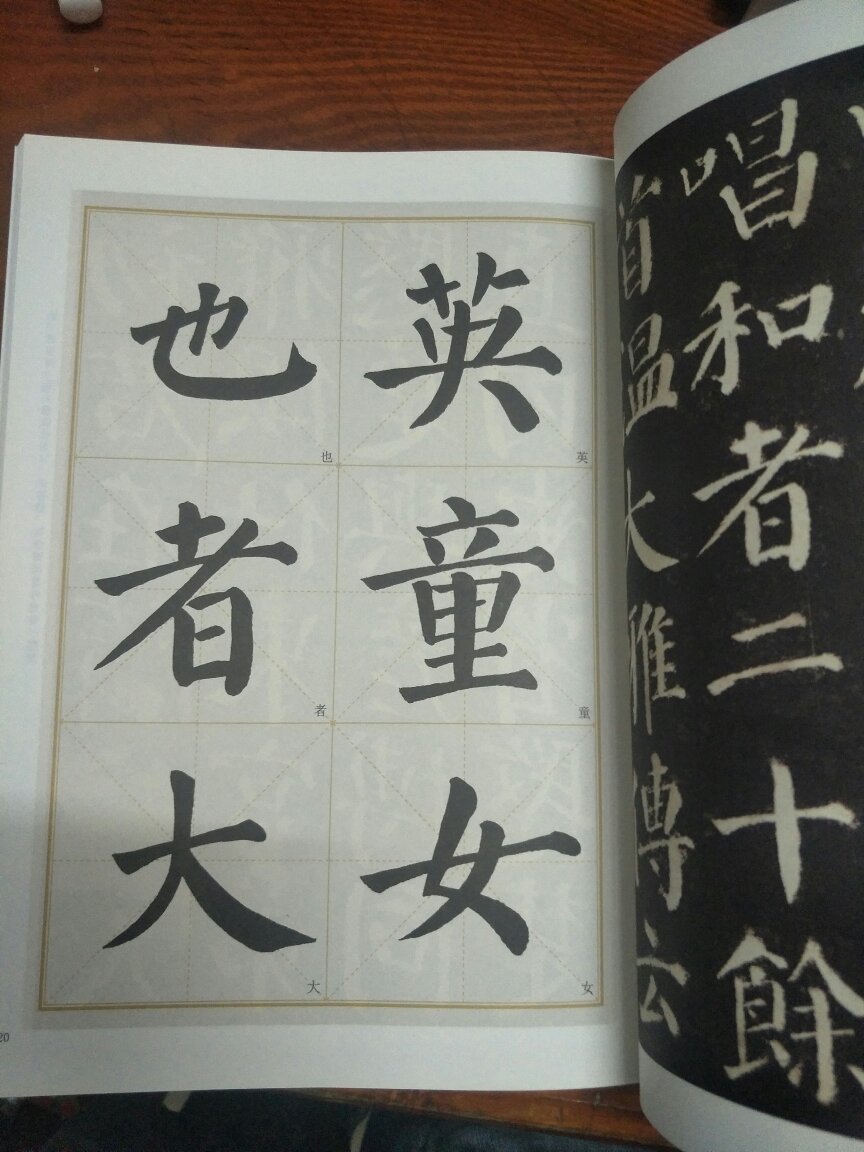 英童女
英
童
女
也者大
也
者
大
20
唱和者二十餘
首温大雅傳云